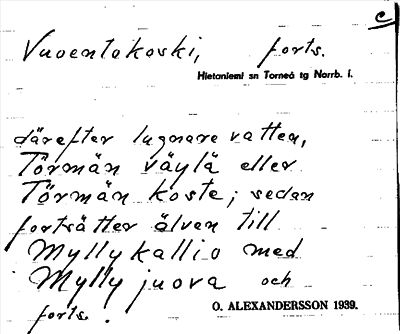 c
Vuoentakoski, forts.
Hietaniemi sn Torneå tg Norrb. l.
därefter lugnare vatten,
Törmän väylä eller
Törmän koste; sedan
fortsätter älven till
Myllykallio med
Myllyjuova och
forts.
O. ALEXANDERSSON 1939.